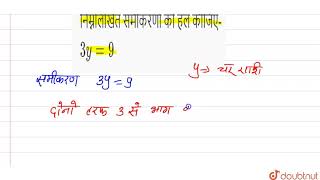 निम्नलिखित समीकरणों को हल कीजिए-
3y = 9
समीकरण 3y = 9
y → चर राशी
दोनो तरफ 3 से भाग
doubtnut